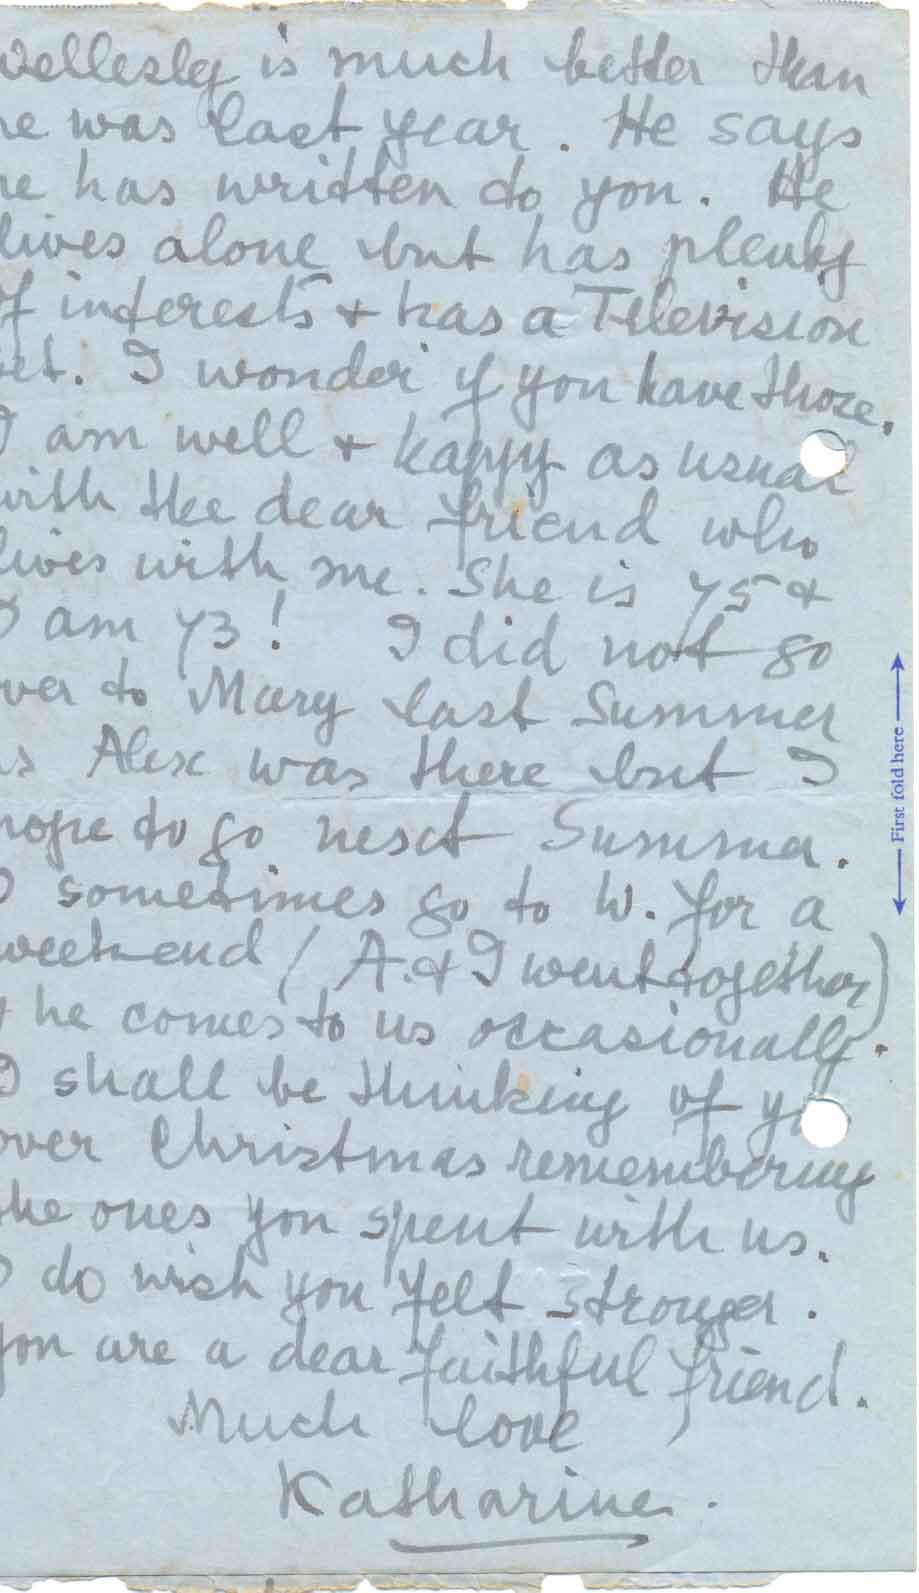 Wellesley is much better than
he was last year. He says
he has written to you. He
lives alone but has plenty
of interests & has a Television
set. I wonder if you have those.
I am well & happy as usual
with the dear friend who
lives with me. She is 75 &
I am 73! I did not go
over to Mary last Summer
as Alex was there but I
hope to go next Summer.
I sometimes go to W. for a
week-end (A. & I went together)
& he comes to us occasionally.
I shall be thinking of you
over Christmas remembering
the ones you spent with us.
I do wish you felt stronger.
You are a dear faithful friend.
Much love
Katharine.
First fold here